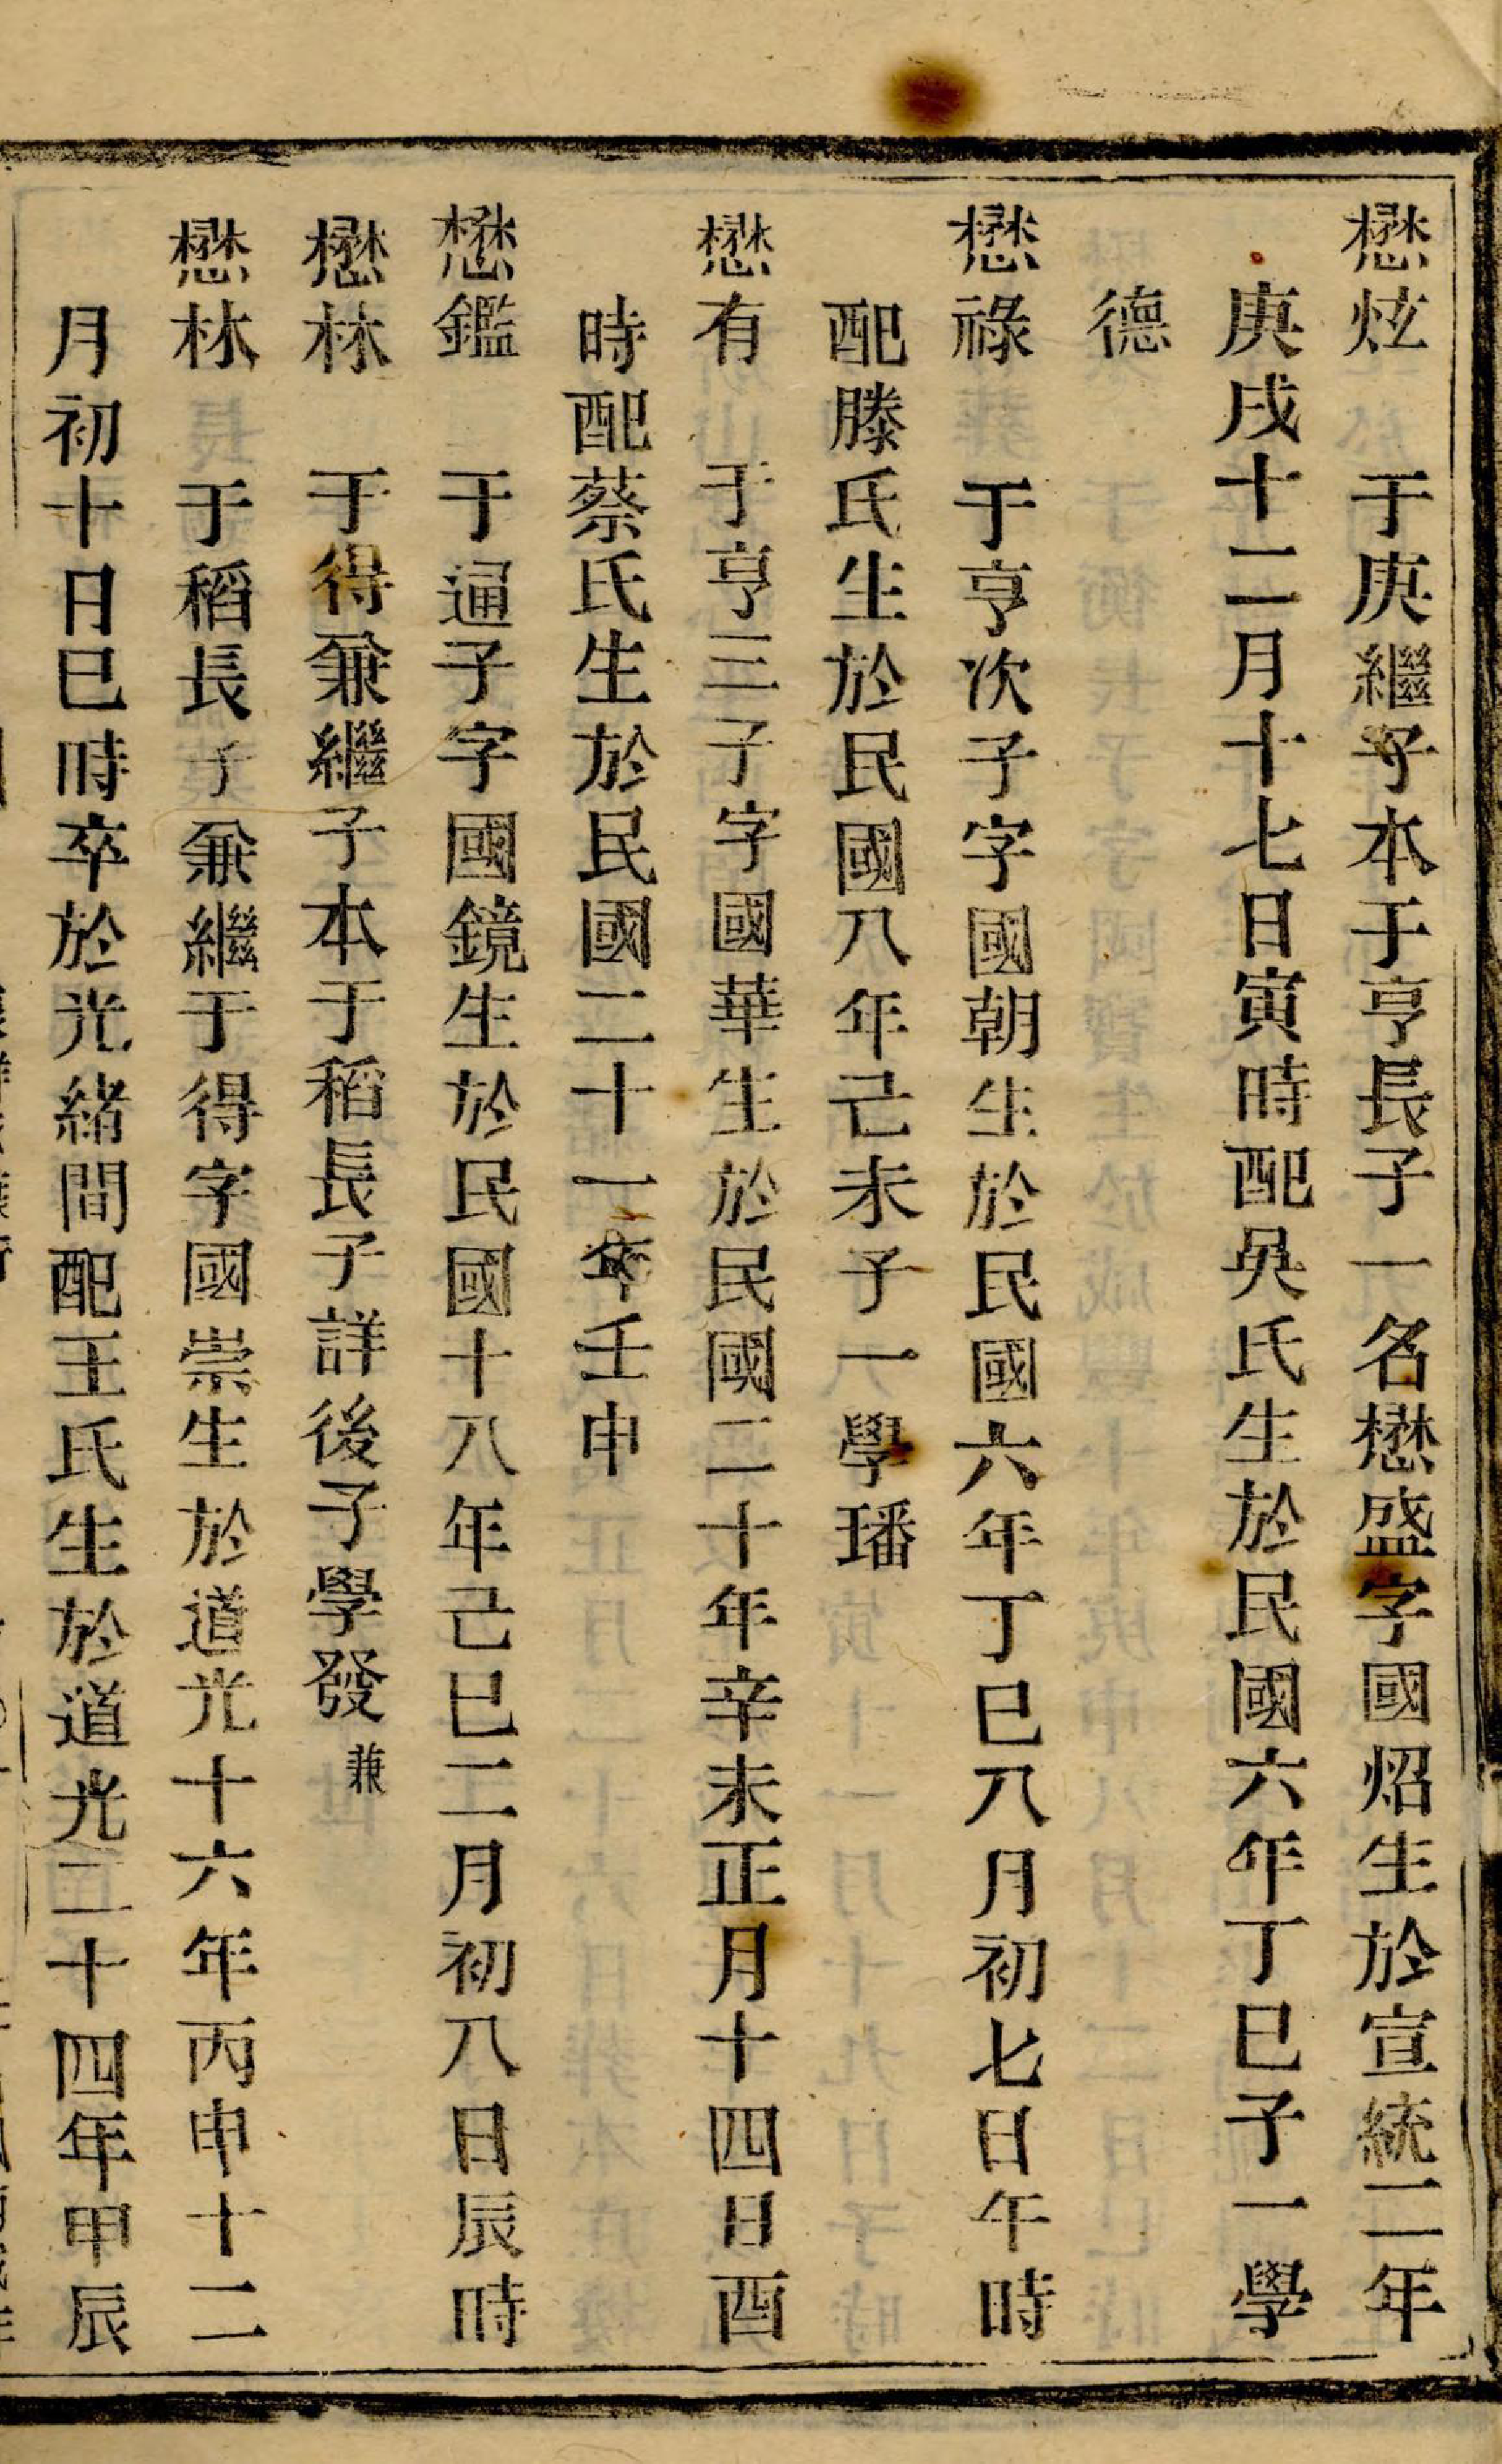 懋炫 于庚繼子本于亨長子一名懋盛字國炤生於宣統二年
庚戌十二月十七日寅時配吳氏生於民國六年丁巳子一學
德
懋祿 于亨次子字國朝生於民國六年丁巳八月初七日午時
配滕氏生於民國八年己未子一學璠
懋有 于亨三子字國華生於民國二十年辛未正月十四日酉
時配蔡氏生於民國二十一年壬申
懋鑑 于通子字國鏡生於民國十八年己巳二月初八日辰時
懋林 于得兼繼子本于稻長子詳後子學發兼
懋林 于稻長子兼繼于得字國崇生於道光十六年丙申十二
月初十日巳時卒於光緒間配王氏生於道光二十四年甲辰